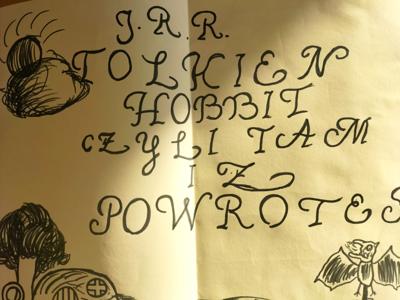 J.R.R.
TOLKIEN
HOBBIT
CZYLI TAM
I Z
POWROTE